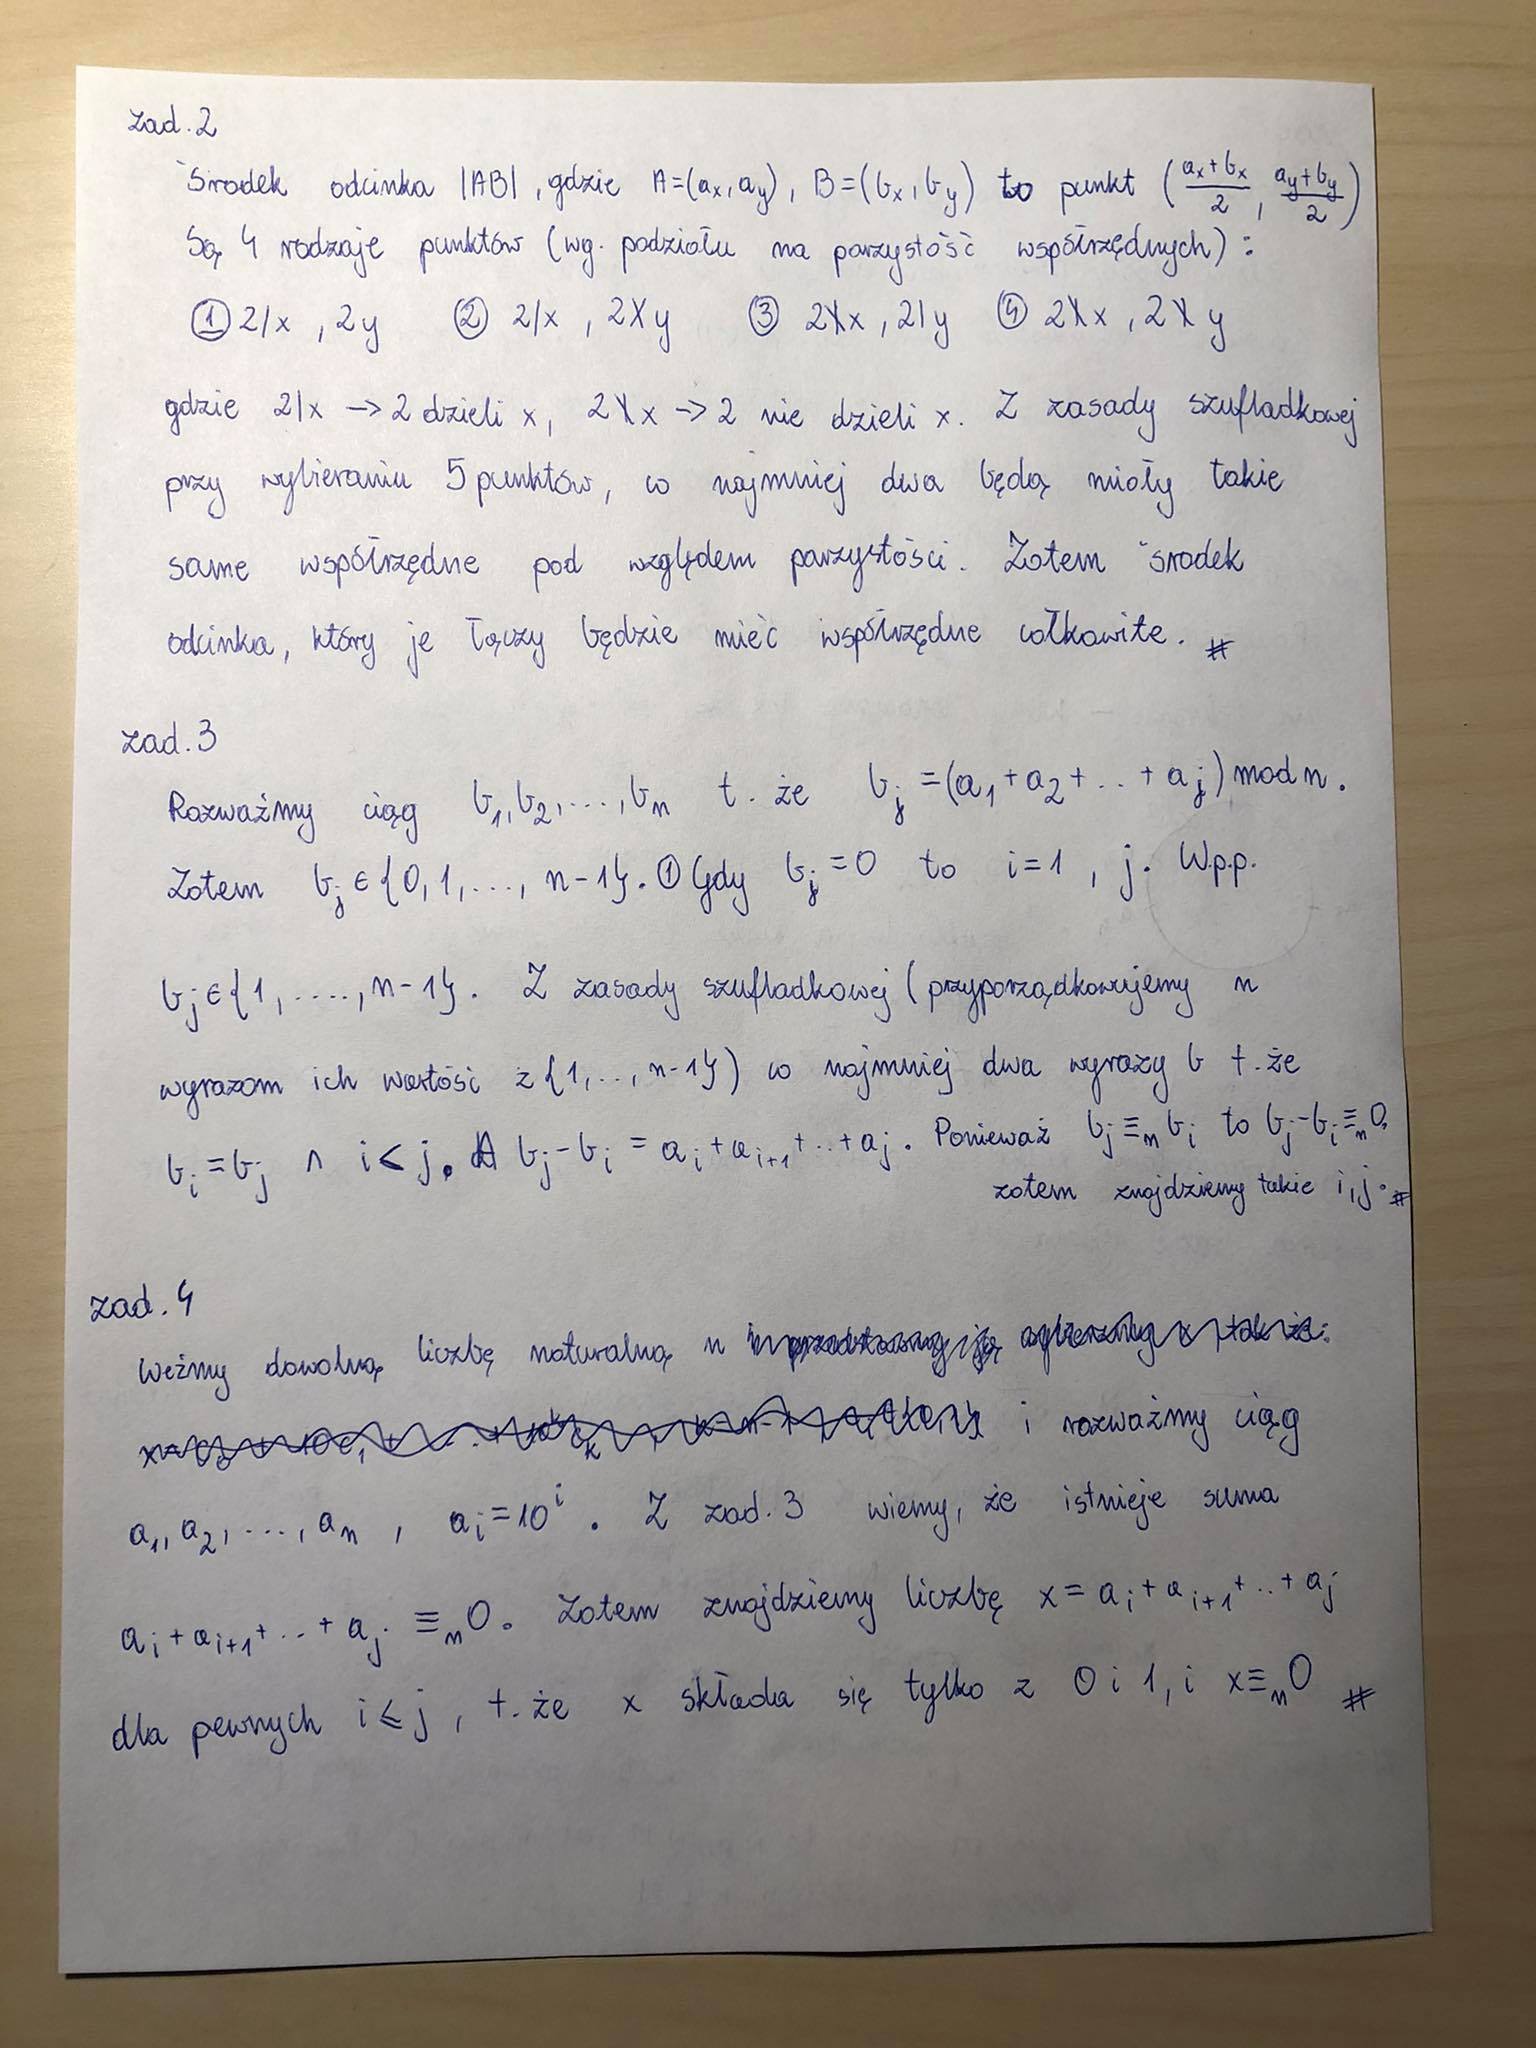 zad. 2
Środek odcinka |AB|, gdzie A=(aₓ, a_y), B=(bₓ, b_y) to punkt (\frac{aₓ+bₓ}{2}, \frac{a_y+b_y}{2})
Są 4 rodzaje punktów (wg. podziału na parzystość współrzędnych):
① 2|x , 2y ② 2|x , 2∤y ③ 2∤x , 2|y ④ 2∤x , 2∤y
gdzie 2|x -> 2 dzieli x, 2∤x -> 2 nie dzieli x. Z zasady szufladkowej
przy wybieraniu 5 punktów, co najmniej dwa będą miały takie
same współrzędne pod względem parzystości. Zatem środek
odcinka, który je łączy będzie mieć współrzędne całkowite. #
zad. 3
Rozważmy ciąg b₁, b₂, ..., bₙ t. że b_j = (a₁ + a₂ + .. + a_j) mod n.
Zatem b_j ∈ {0, 1, ..., n-1}. ① Gdy b_j = 0 to i=1 , j. W.p.p.
b_j ∈ {1, ...., n-1}. Z zasady szufladkowej (przyporządkowujemy n
wyrazom ich wartość z {1, .., n-1}) co najmniej dwa wyrazy b t. że
b_i = b_j ∧ i < j. A b_j - b_i = a_i + a_{i+1} + .. + a_j. Ponieważ b_j ≡ₙ b_i to b_j - b_i ≡ₙ 0,
zatem znajdziemy takie i, j. #
zad. 4
Weźmy dowolną liczbę naturalną n
i rozważmy ciąg
a₁, a₂, ..., aₙ , a_i = 10^i . Z zad. 3 wiemy, że istnieje suma
a_i + a_{i+1} + .. + a_j ≡ₙ 0. Zatem znajdziemy liczbę x = a_i + a_{i+1} + .. + a_j
dla pewnych i ⩽ j , t. że x składa się tylko z 0 i 1, i x ≡ₙ 0 #